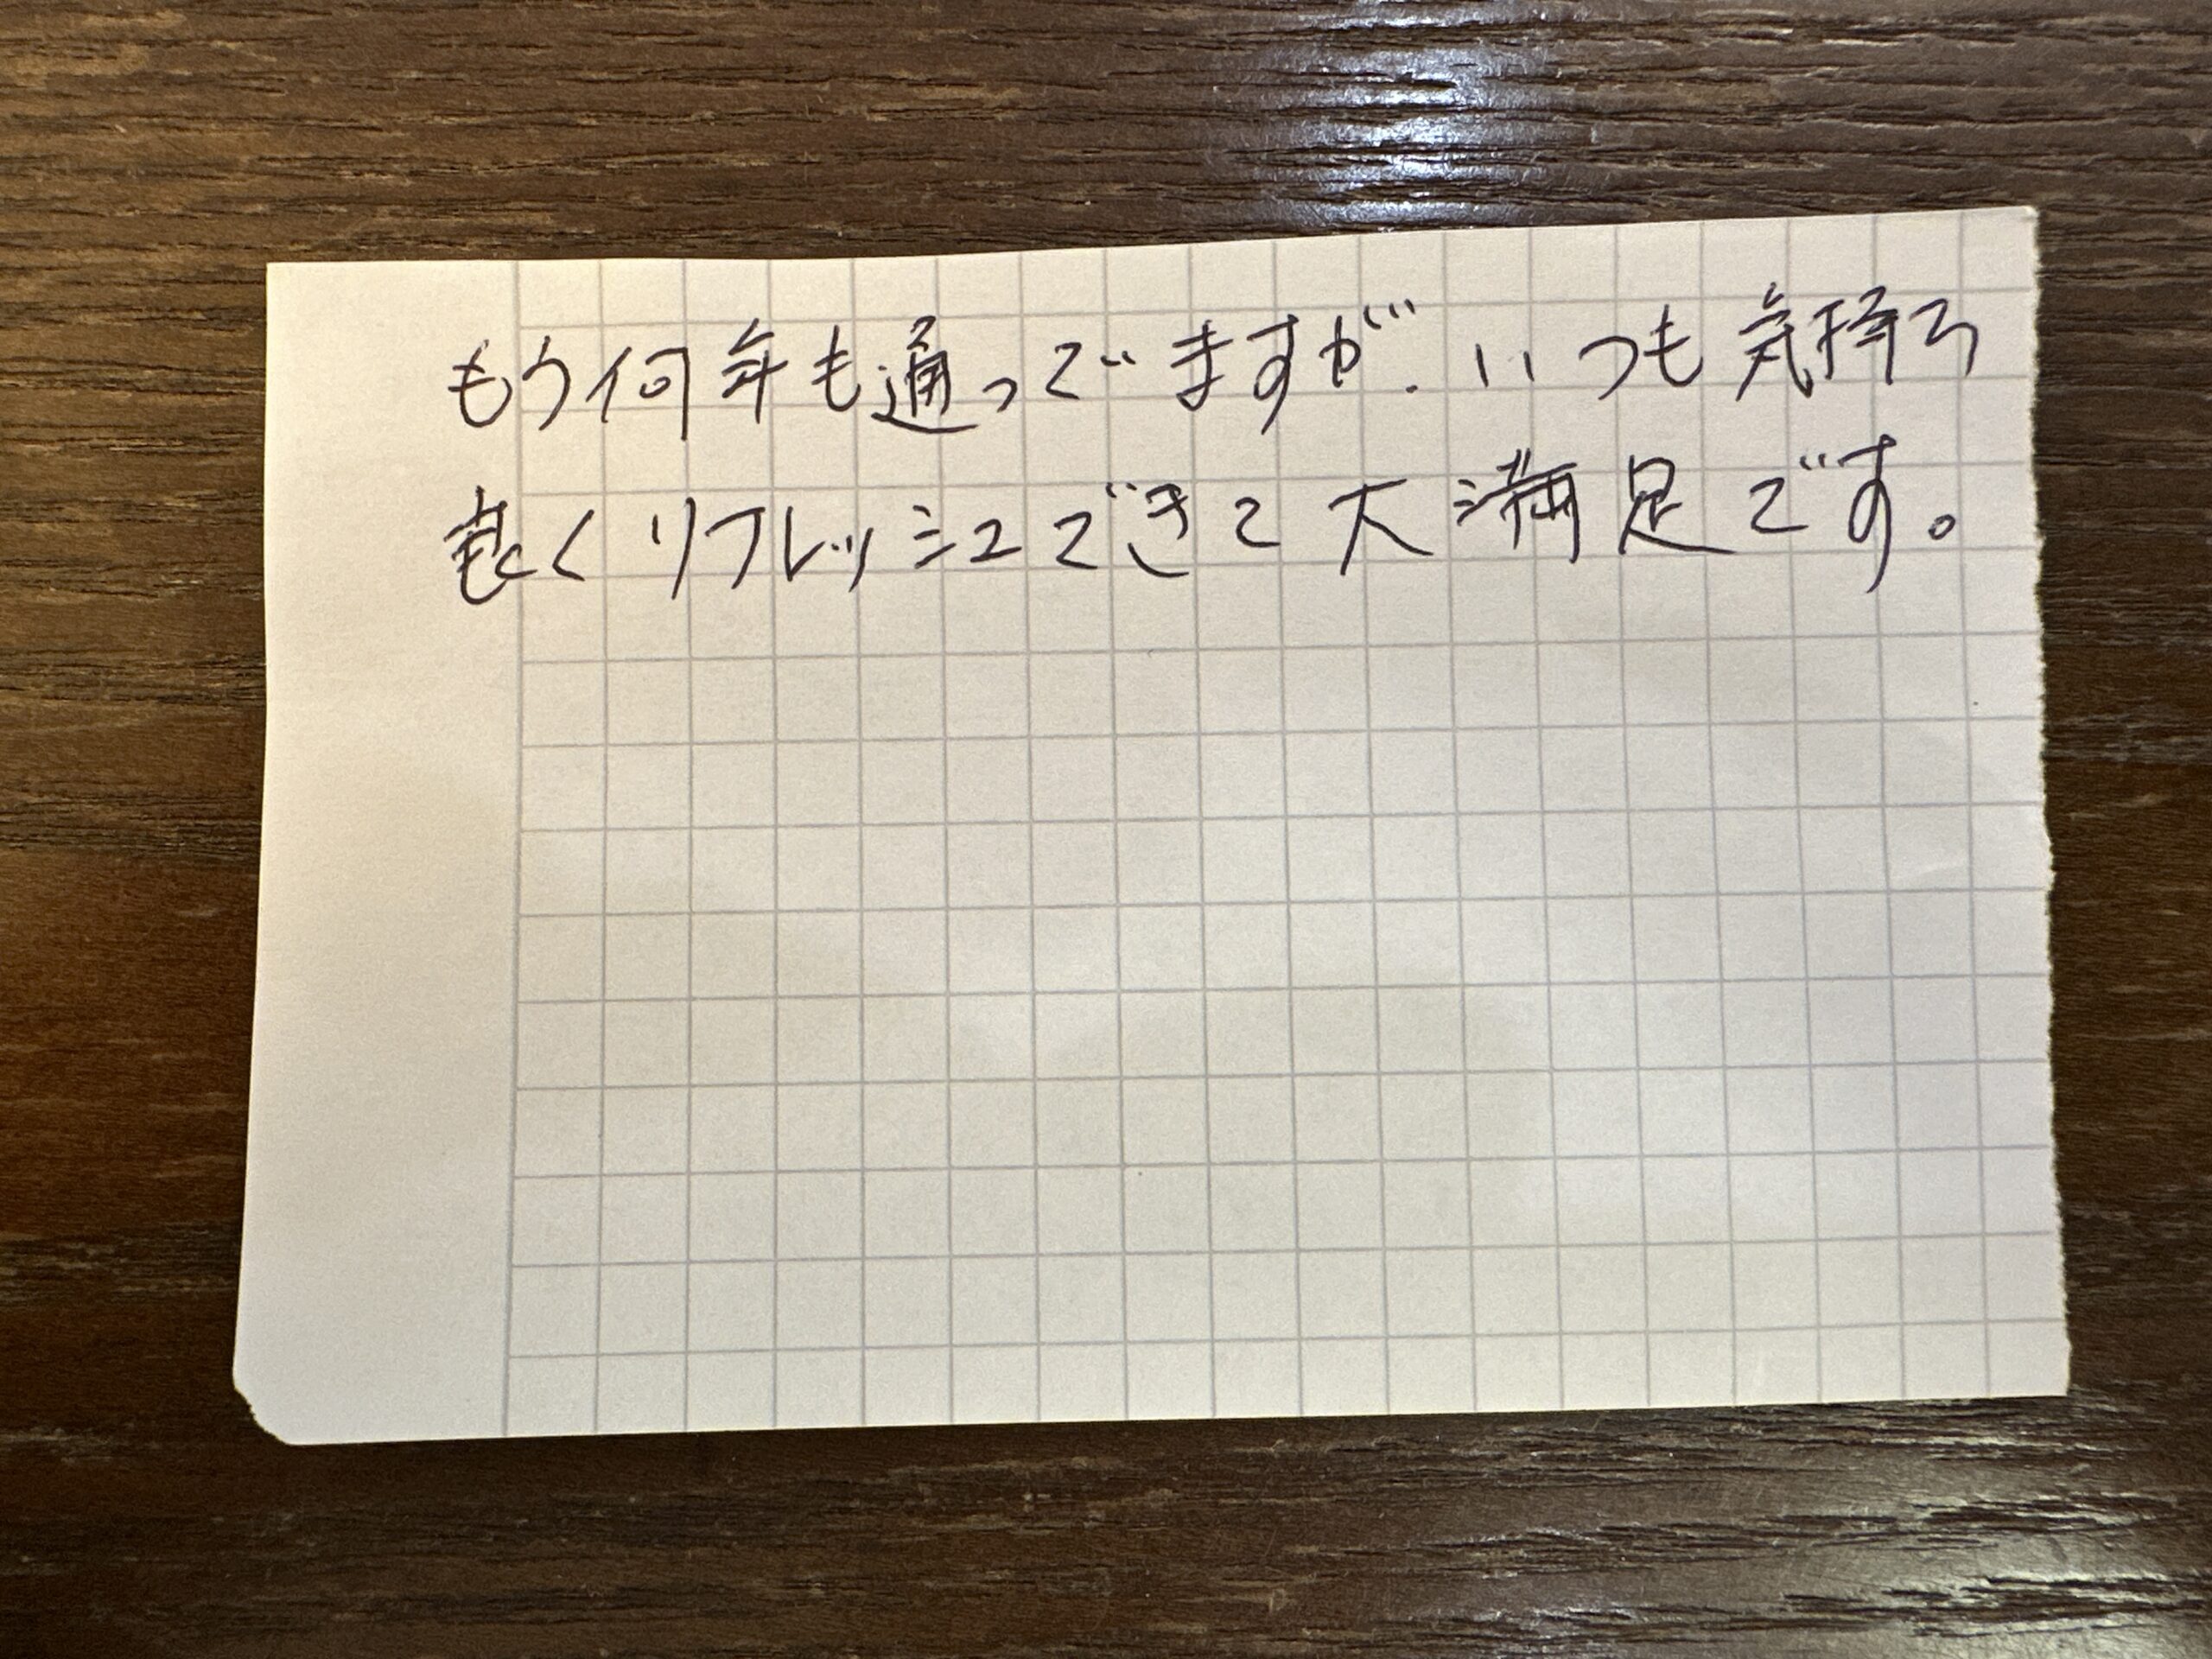 もう何年も通ってでますが、いつも気持ち
良くリフレッシュできて大満足です。